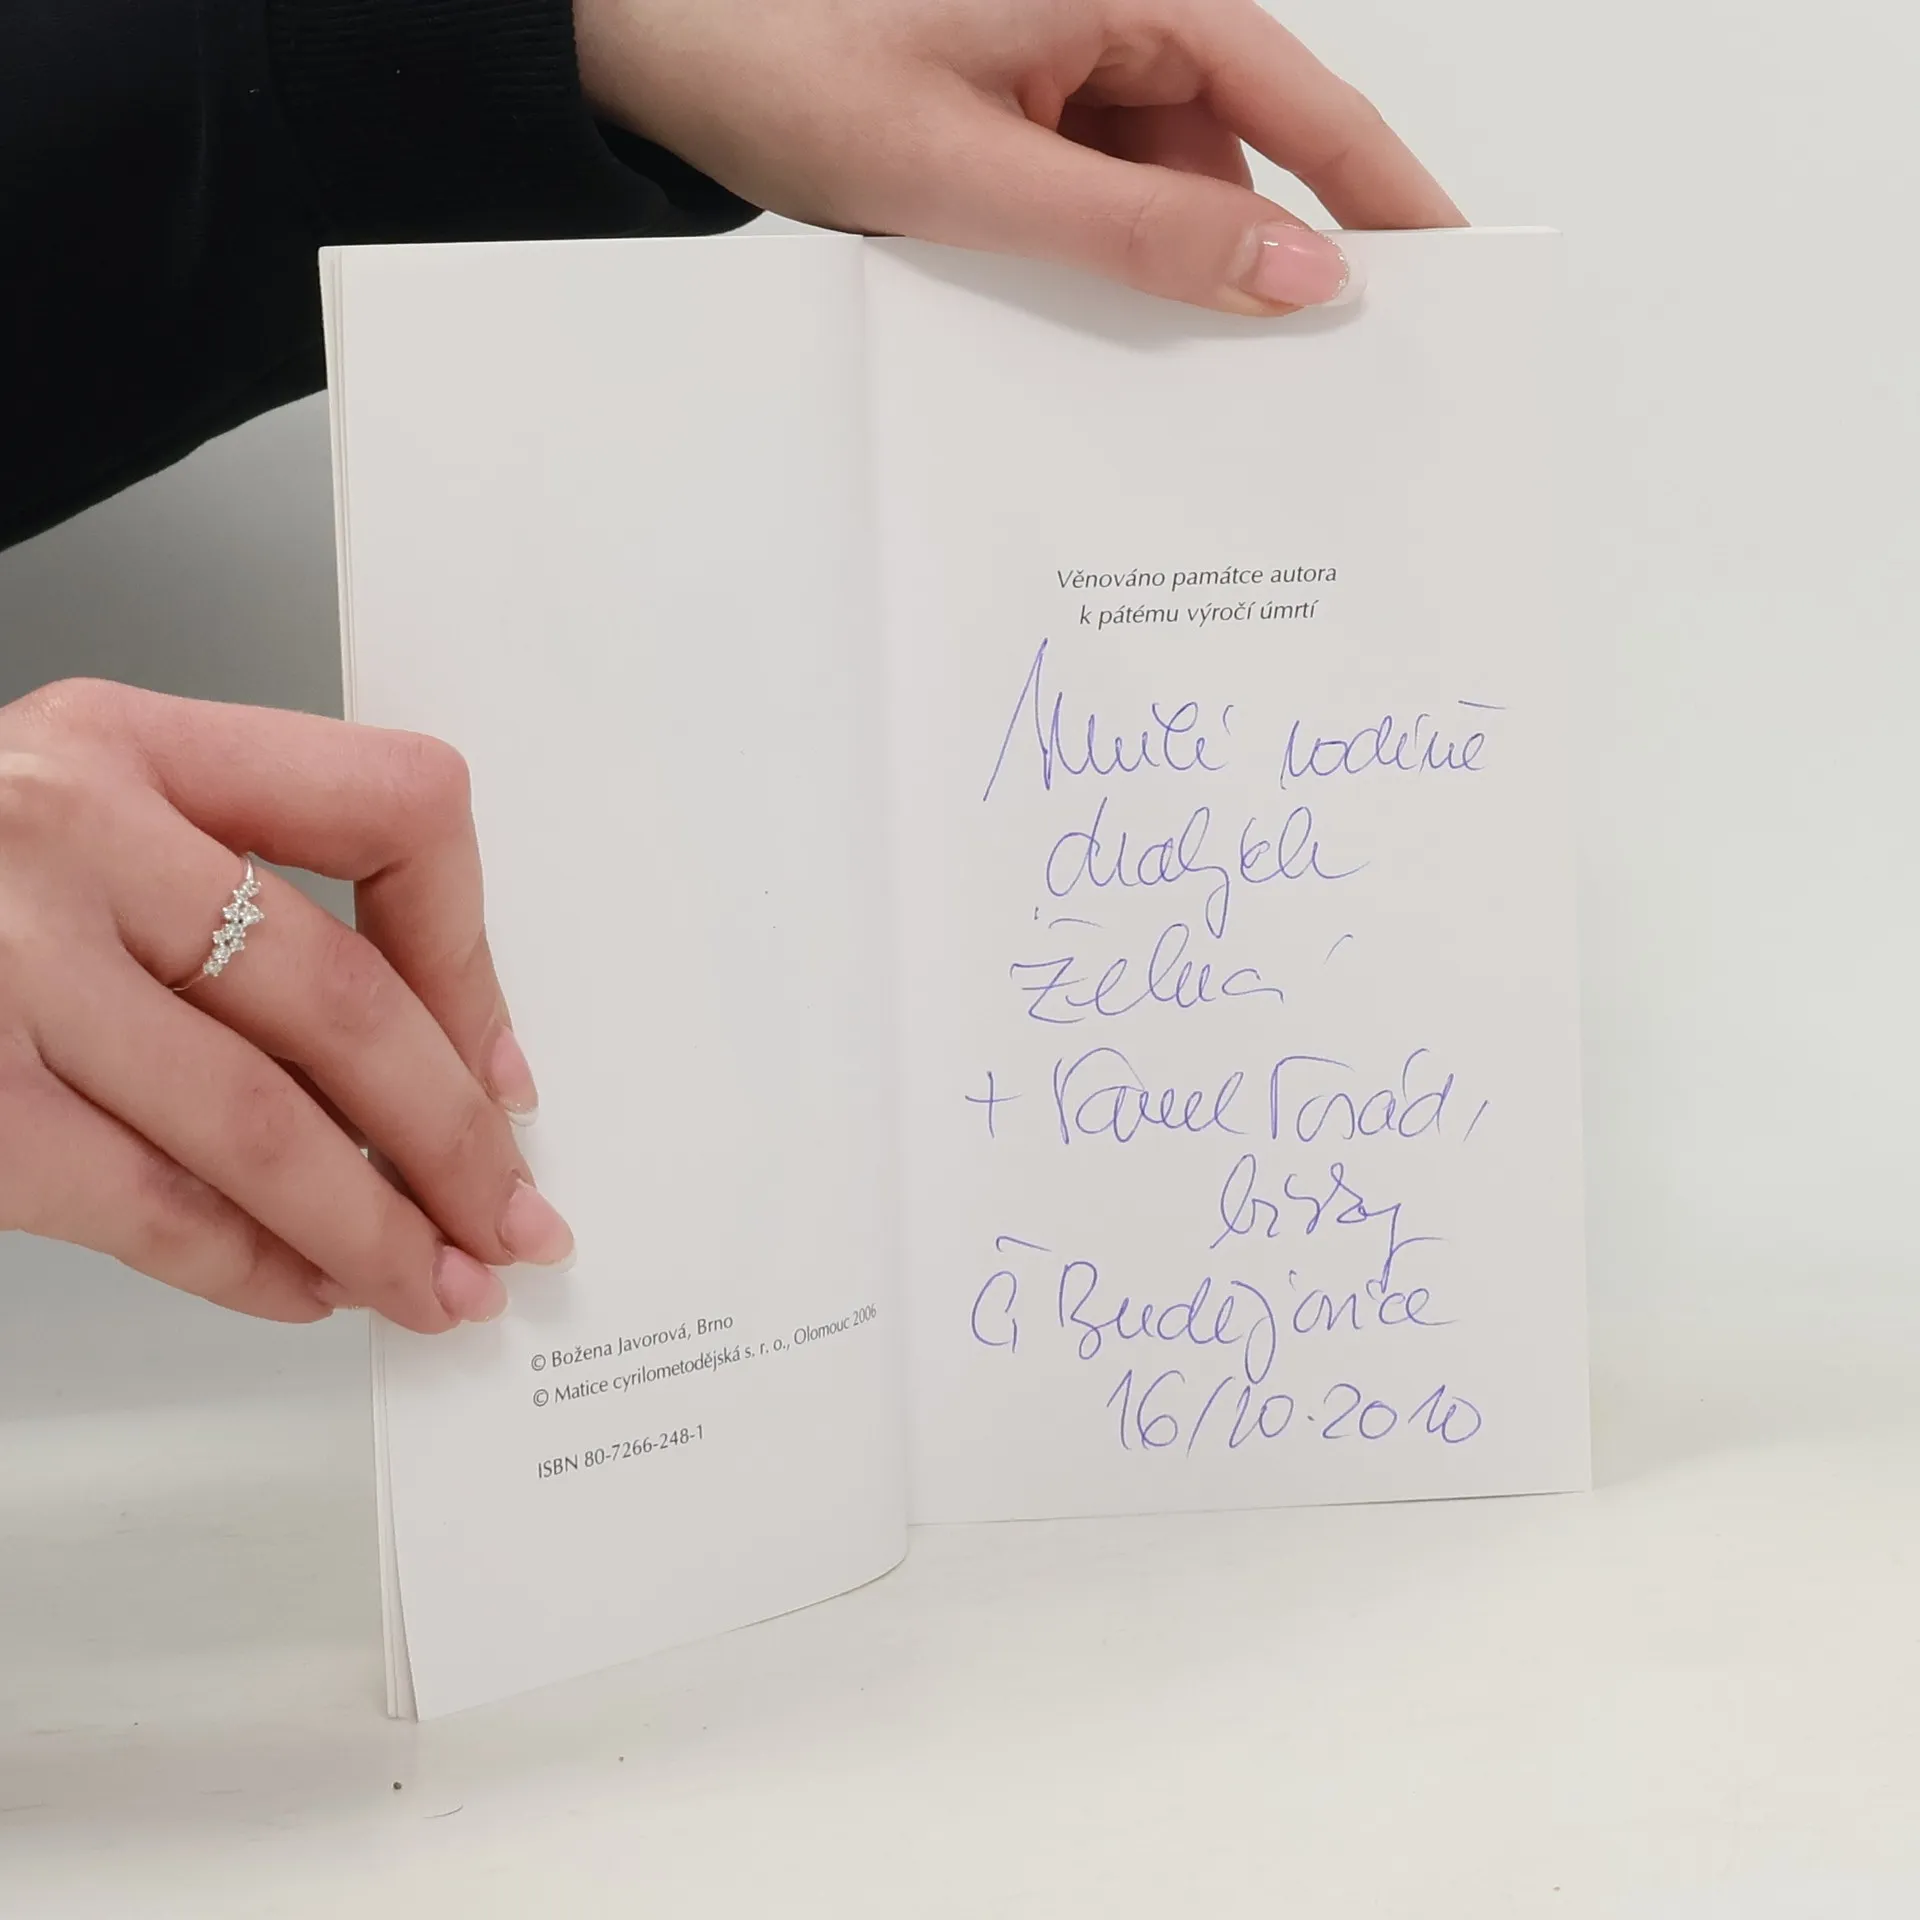 © Božena Javorová, Brno
© Matice cyrilometodějská s. r. o., Olomouc 2006
ISBN 80-7266-248-1
Věnováno památce autora
k pátému výročí úmrtí
Milé rodině
drahých
+ Pavel Posád,
Č Budějovice
16/10.2010